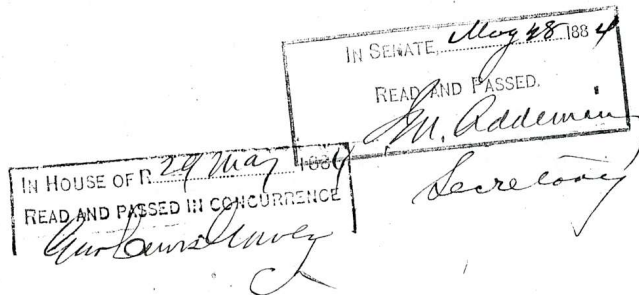 IN SENATE, May 28 1884
READ AND PASSED.
J.M. Addeman
Secretary
IN HOUSE OF R. 29 May 1884
READ AND PASSED IN CONCURRENCE